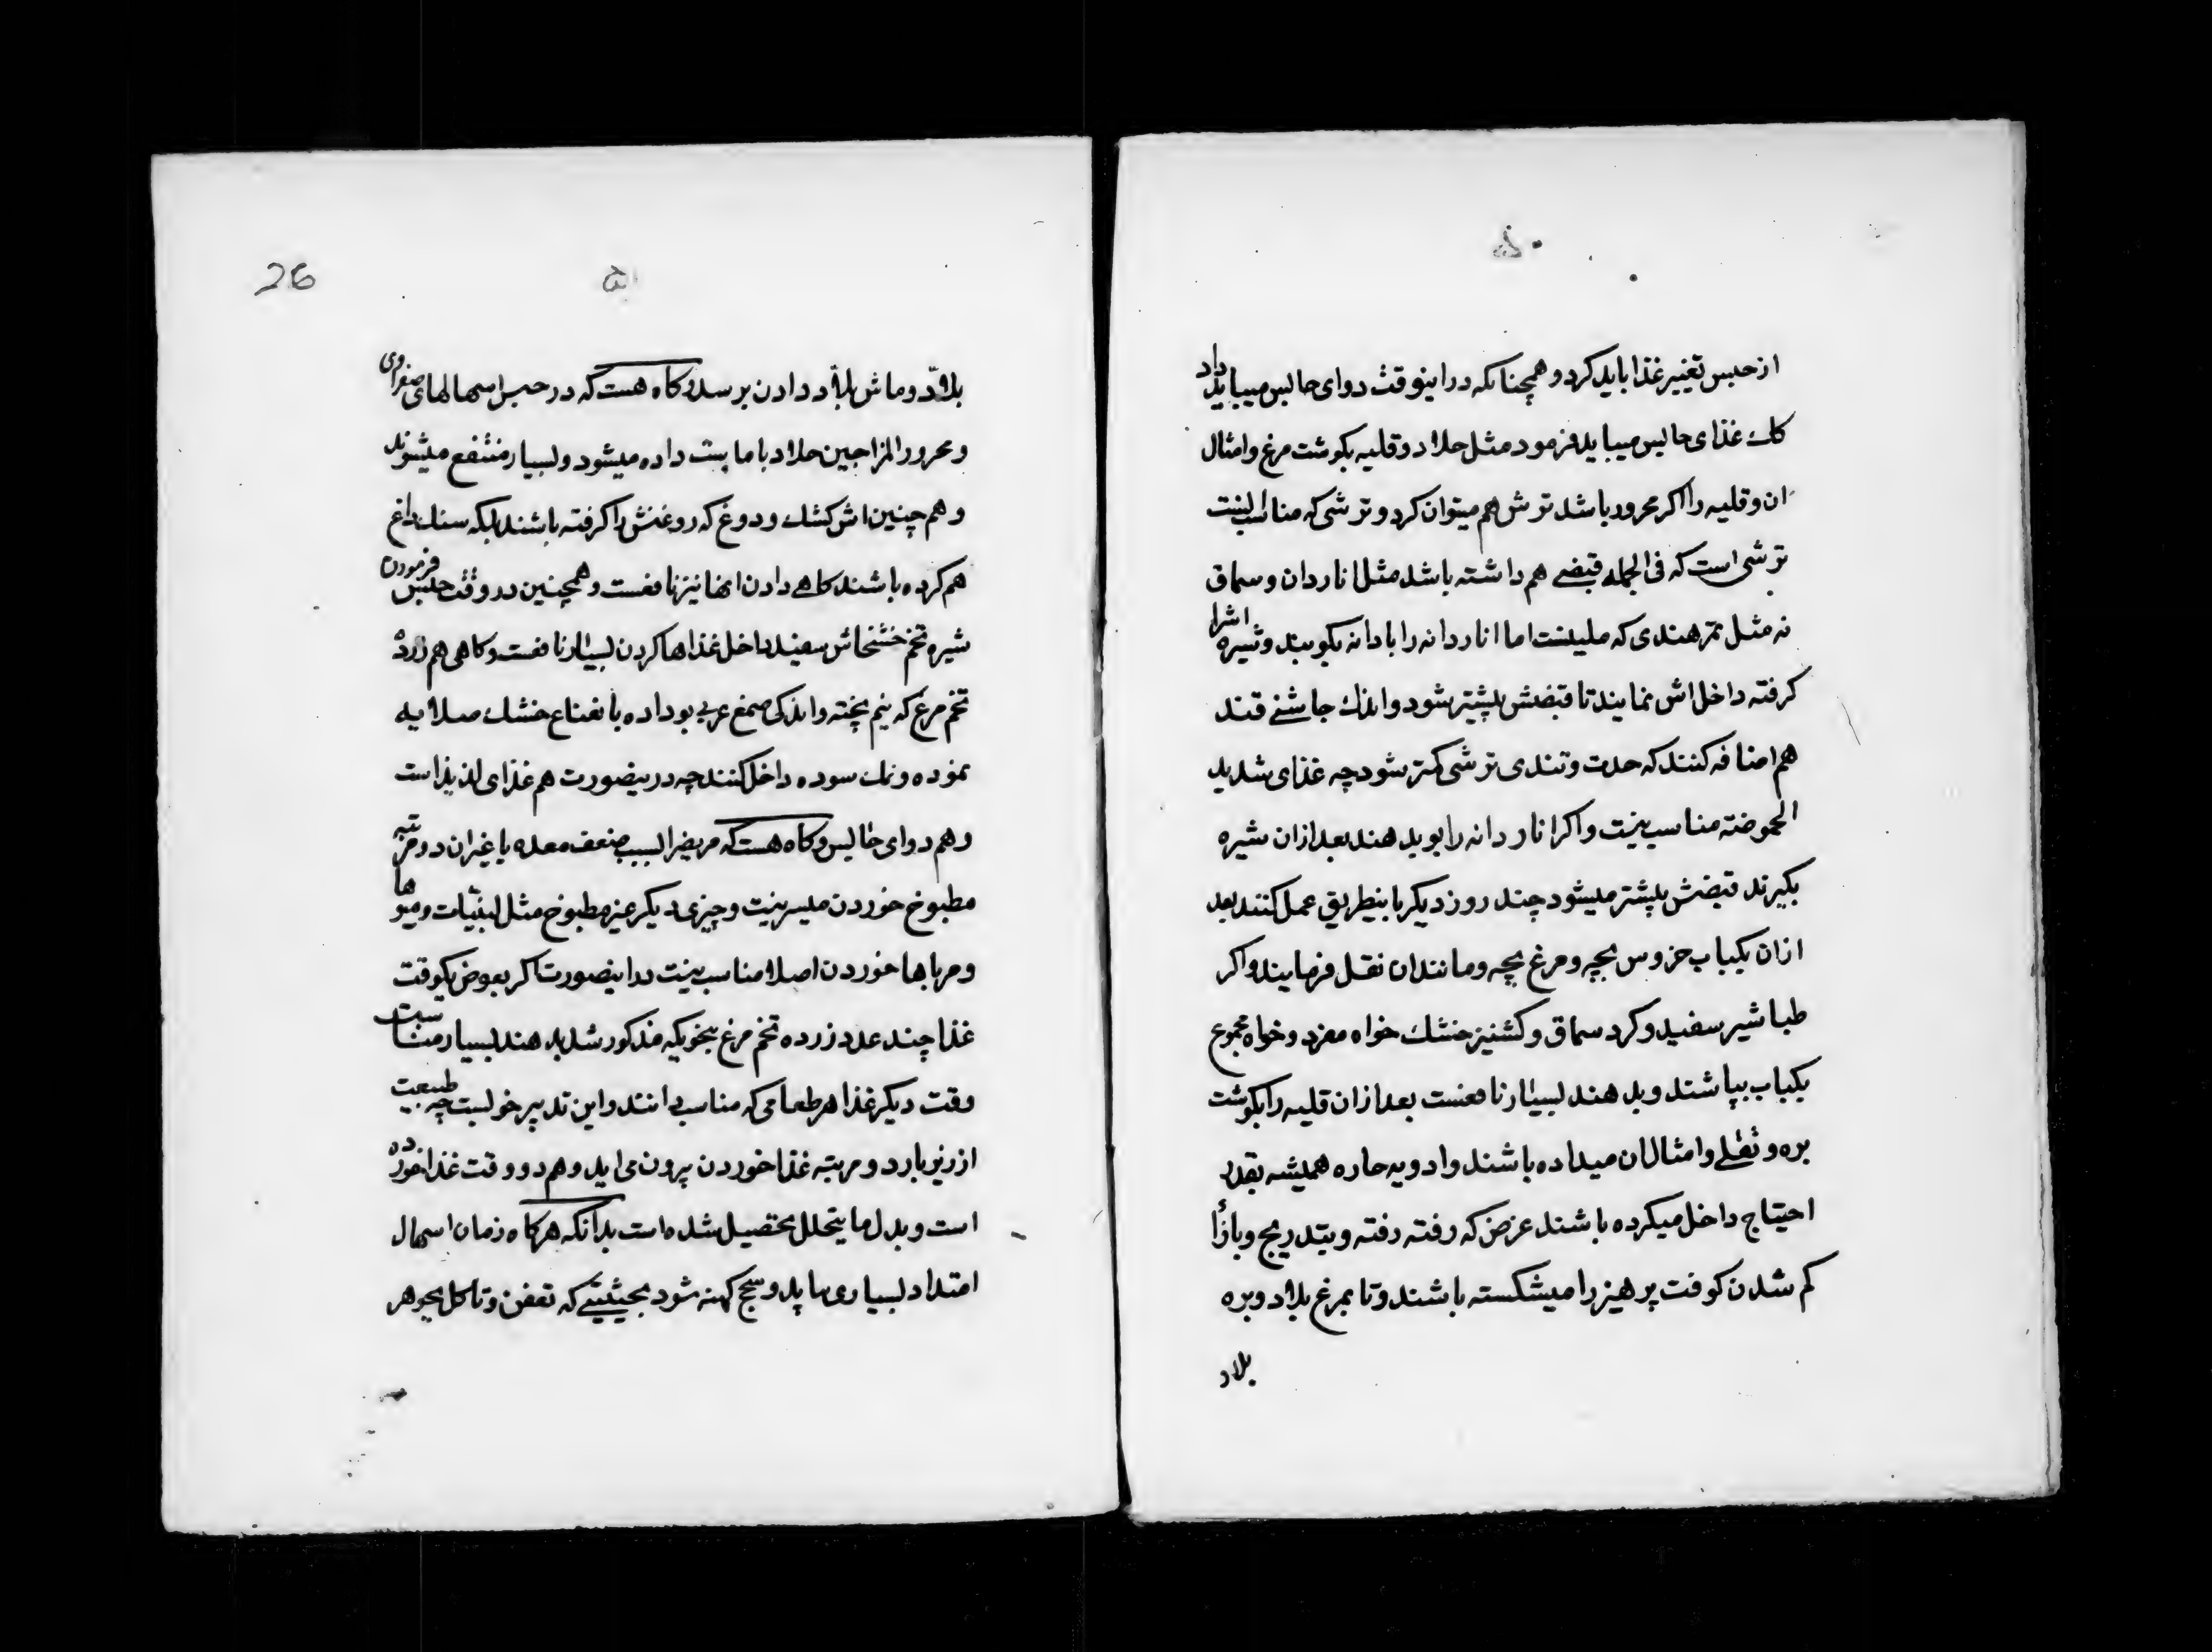 ۵۰
از حبس تغییر غذا باید کرد و همچنانکه در اینوقت دوای حابس میباید داد
کاه غذای حابس میباید فرمود مثل حلاد و قلیه بکوشت مرغ و امثال
ان و قلیه را اکر محرور باشد ترش هم میتوان کرد و ترشی که مناسبست
ترشی است که فی الجمله قبضی هم داشته باشد مثل اناردان و سماق
نه مثل تمر هندی که ملینست اما اناردانه را با دانه بکوبند و شیره اشرا
کرفته داخل اش نمایند تا قبضش بیشتر شود و اندک چاشنی قند
هم اضافه کنند که حدت و تندی ترشی کمتر شود چه غذای شدید
الحموضته مناسب نیست و اکر اناردانه را بو بدهند بعد ازان شیره
بکیرند قبضش بیشتر میشود چند روز دیکر باینطریق عمل کنند بعد
ازان بکباب خروس بچه و مرغ بچه و مانند ان نقل فرمایند و اکر
طباشیر سفید و کرد سماق و کشنیز خشک خواه مفرد و خواه مجموع
بکباب بپاشند و بدهند بسیار نافعست بعد ازان قلیه را بکوشت
بره و نقلی و امثال ان میداده باشند و ادویه حاره همیشه بقدر
احتیاج داخل میکرده باشند غرض که رفته رفته و بتدریج و بازا
کم شدن کوفت پرهیز را میشکسته باشند و تا بمرغ پلاو و بره
پلاو
26
۵۱
پلاو و ماش پلاو دادن برسد و کاه هست که در حبس اسهالهای صفراوی
و محرور المزاجین حلاد با ماست داده میشود و بسیار منتفع میشوند
و هم چنین اش کشک و دوغ که روغنش را کرفته باشند بلکه سنک داغ
هم کرده باشند کاهی دادن انها نیز نافعست و همچنین در وقت حبس فرمودن
شیره تخم خشخاش سفید داخل غذاها کردن بسیار نافعست و کاهی هم زرده
تخم مرغ که نیم پخته و اندکی صمغ عربی بو داده با نعناع خشک صلایه
نموده و نمک سوده داخل کنند چه درینصورت هم غذای لذیذ است
و هم دوای حابس و کاه هست که مریض را بسبب ضعف معده یا غیر ان دو مرتبه
مطبوخ خوردن میسر نیست و چیزی دیکر غیر مطبوخ مثل لبنیات و میوها
و مرباها خوردن اصلا مناسب نیست در اینصورت اکر بعوض یکوقت
غذا چند عدد زرده تخم مرغ بنحویکه مذکور شد بدهند بسیار مناسبست
وقت دیکر غذا هر طعامی که مناسب دانند و این تدبیر خوبست چه طبیعت
از زیر بار دو مرتبه غذا خوردن بیرون می اید و هم دو وقت غذا خورده
است و بدل ما یتحلل تحصیل شده است بدانکه هرکاه زمان اسهال
امتداد بسیاری بیابد و سحج کهنه شود بحیثیتی که تعفن و تاکل بجوهر